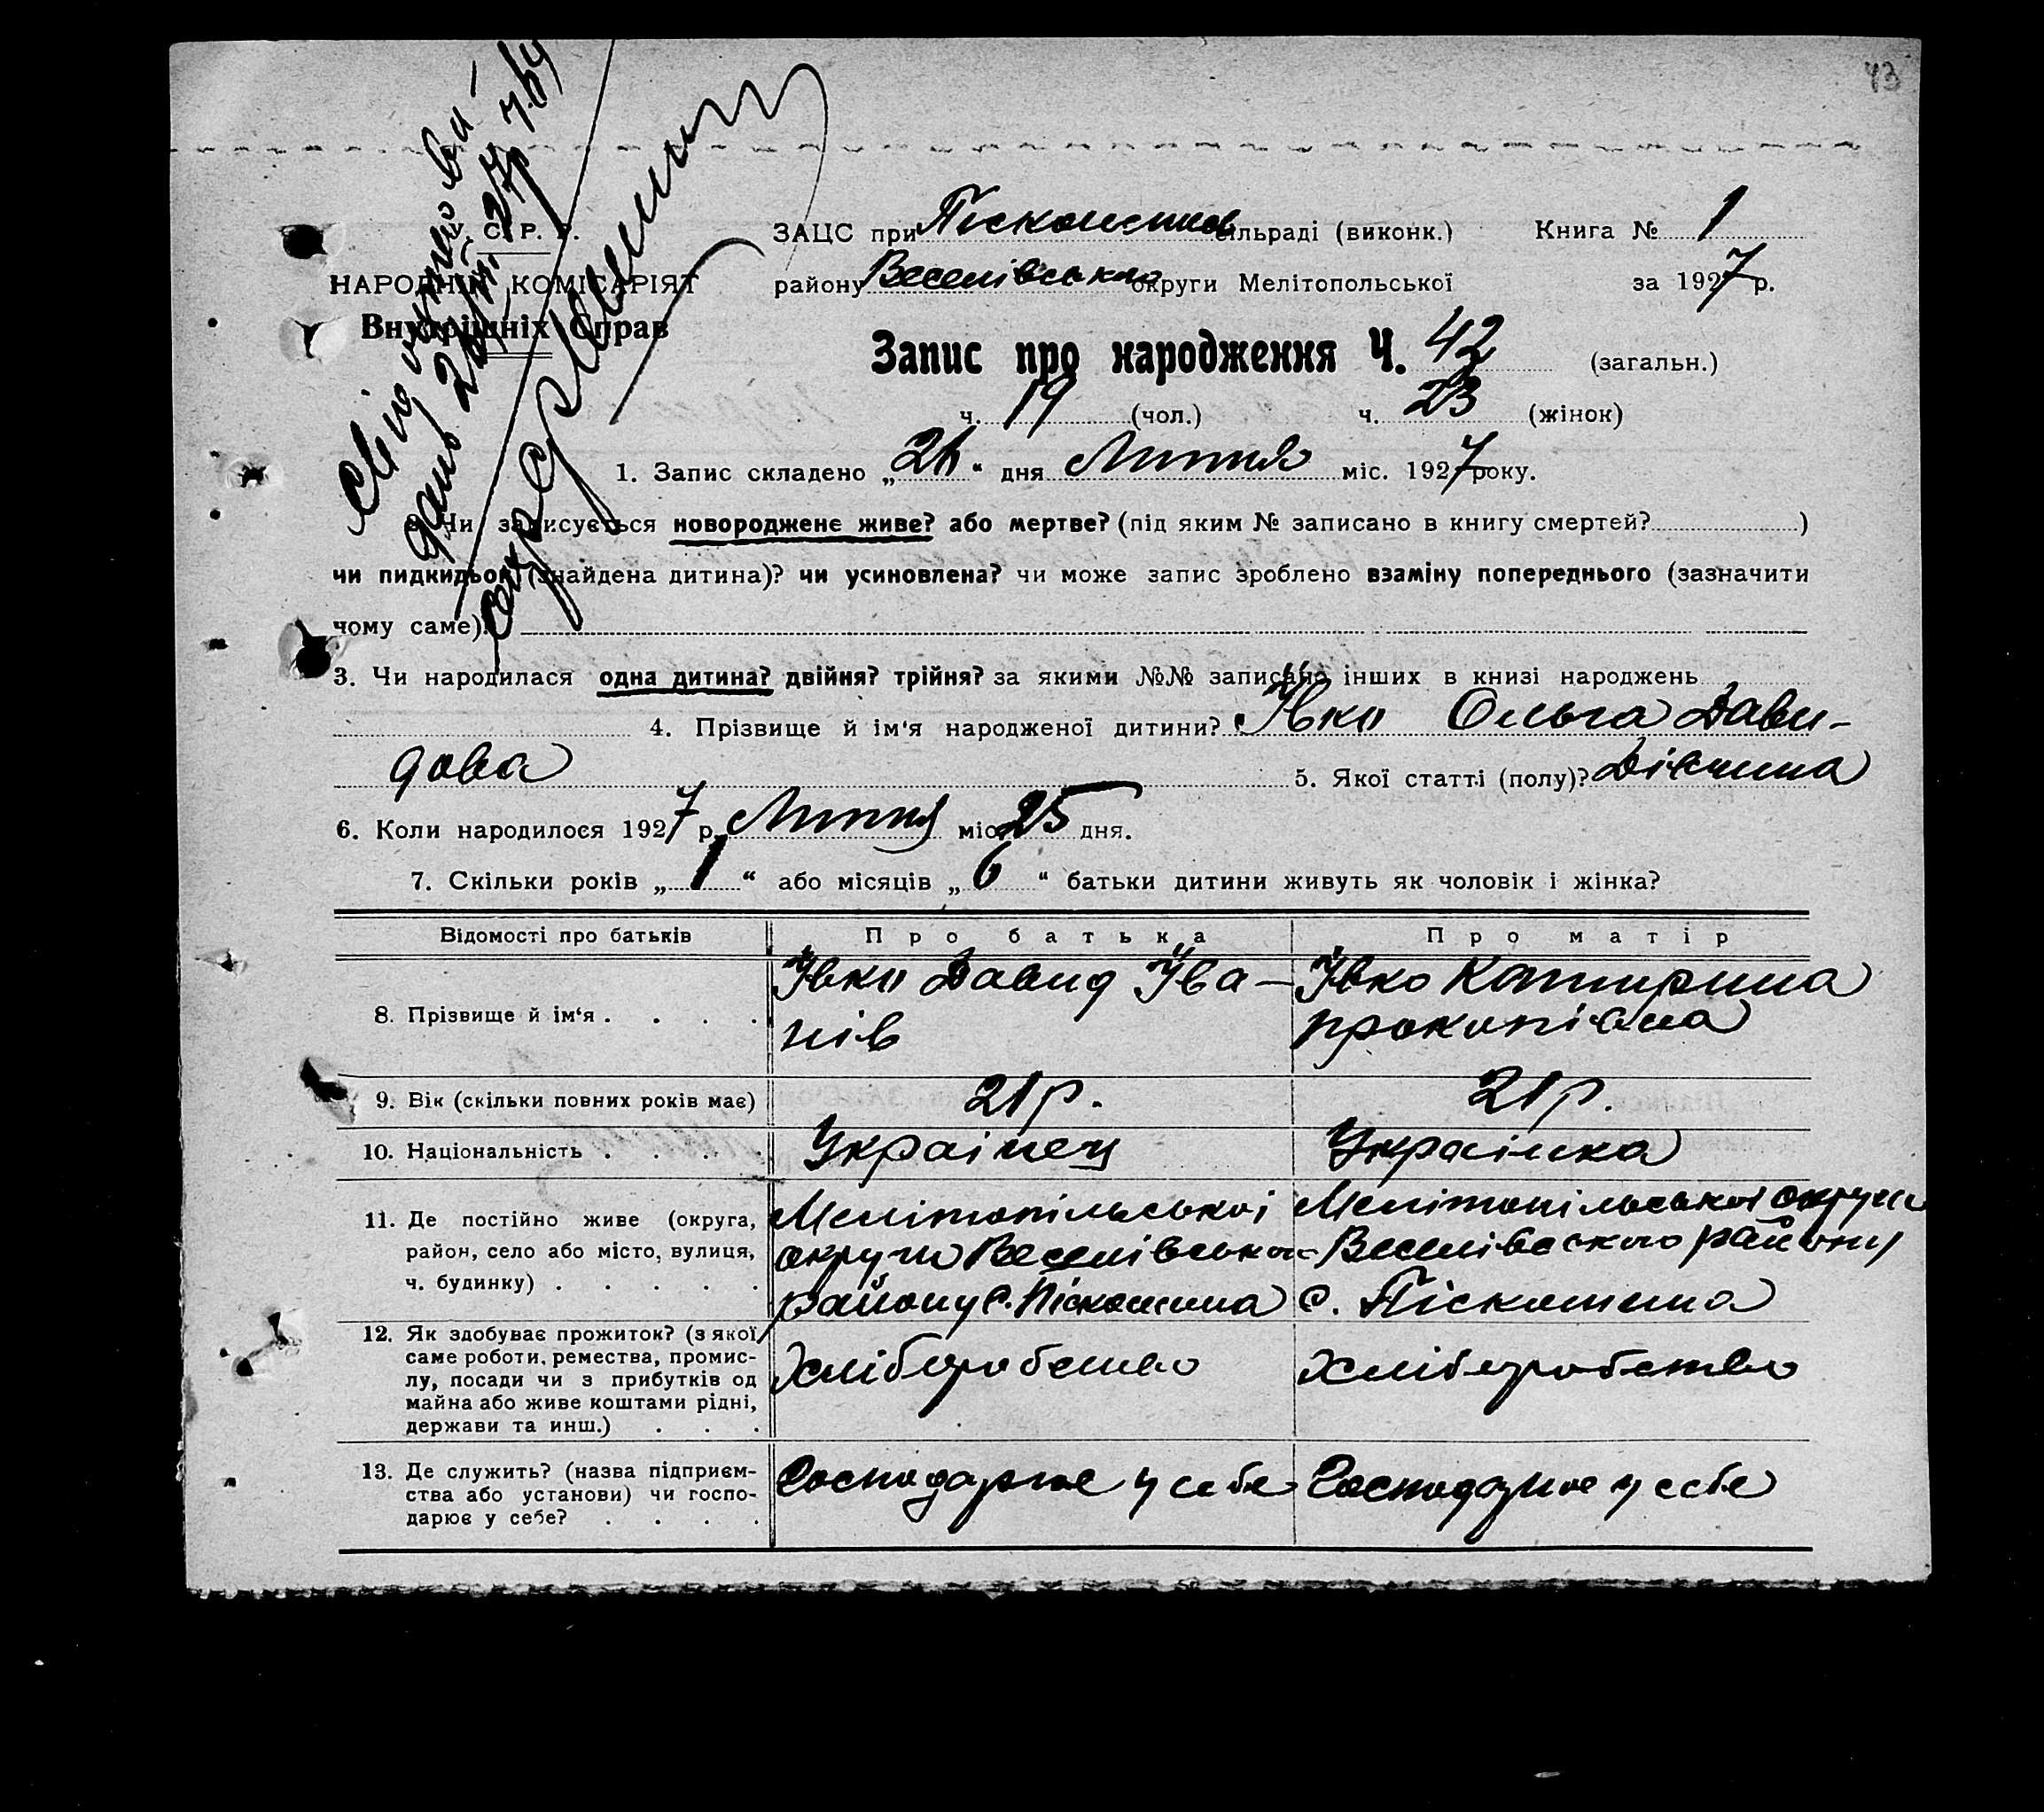 43
Свідоцтво ви-
дано
секр
С. Р. Р.
НАРОДНІЙ КОМІСАРІЯТ
Внутрішніх Справ
ЗАЦС при Піскошинов сільраді (виконк.) Книга № 1
району Веселівського округи Мелітопольської за 1927 р.
Запис про народження Ч. 42 (загальн.)
ч. 19 (чол.) ч. 23 (жінок)
1. Запис складено „26“ дня Липня міс. 1927 року.
2. Чи записується новороджене живе? або мертве? (під яким № записано в книгу смертей? )
чи пидкидьок (знайдена дитина)? чи усиновлена? чи може запис зроблено взаміну попереднього (зазначити
чому саме).
3. Чи народилася одна дитина? двійня? трійня? за якими №№ записано інших в книзі народжень
4. Прізвище й ім‘я народженої дитини? Ївко Ольга Дави-
дова 5. Якої статті (полу)? Дівчина
6. Коли народилося 1927 р. Липня міс. 25 дня.
7. Скільки років „1“ або місяців „6“ батьки дитини живуть як чоловік і жінка?
Відомості про батьків Про батька Про матір
8. Прізвище й ім‘я . . . . Ївко Давид Їва- Ївко Катирина
нів прокопівна
9. Вік (скільки повних років має) 21 р. 21 р.
10. Національність . . . . Українец Українка
11. Де постійно живе (округа, Мелітопільської Мелітопільської округи
район, село або місто, вулиця, округи Веселівсько- Веселівского району
ч. будинку) . . . . . району с. Піскошина с. Піскошина
12. Як здобуває прожиток? (з якої
саме роботи, ремества, промис- Хліборобство Хліборобство
лу, посади чи з прибутків од
майна або живе коштами рідні,
держави та инш.) . . .
13. Де служить? (назва підприєм- Господарює у себе Господарює у себе
ства або установи) чи госпо-
дарює у себе? . . . .